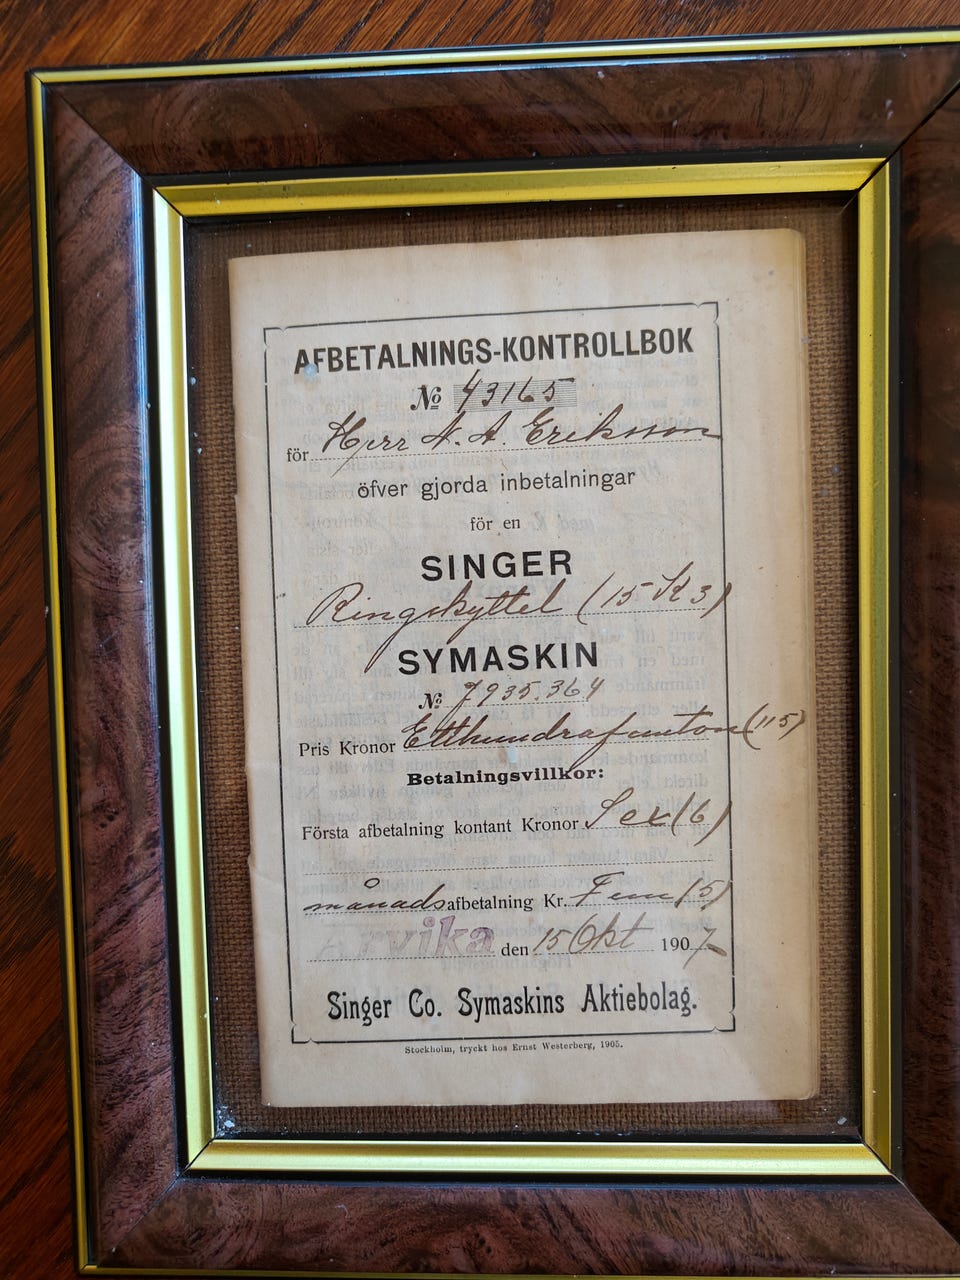 AFBETALNINGS-KONTROLLBOK
№ 43165
för Herr A. A. Eriksson
öfver gjorda inbetalningar
för en
SINGER
Ringskyttel (15 K 3)
SYMASKIN
№ 7935.364
Pris Kronor Etthundrafemton (115)
Betalningsvillkor:
Första afbetalning kontant Kronor Sex (6)
månadsafbetalning Kr. Fem (5)
Arvika den 15 Okt 1907
Singer Co. Symaskins Aktiebolag.
Stockholm, tryckt hos Ernst Westerberg, 1905.